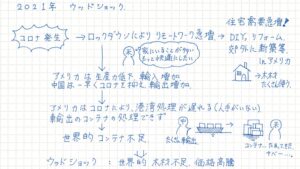 2021年 ウッドショック
コロナ発生 → ロックダウンによりリモートワーク急増 →
住宅需要急増!
DIY、リフォーム、
郊外へ新築等
inアメリカ
家にいることが多い
もっと快適にしたい
→木材
たくさん使う
アメリカは生産力低下、輸入増加
中国は一早くコロナを抑え、輸出増加。
アメリカはコロナにより、港湾処理が遅れる(人手がいない)
車輸出のコンテナの処理できず
世界的コンテナ不足
たくさん輸出
コンテナ
ウッドショック : 世界的 木材不足、価格高騰